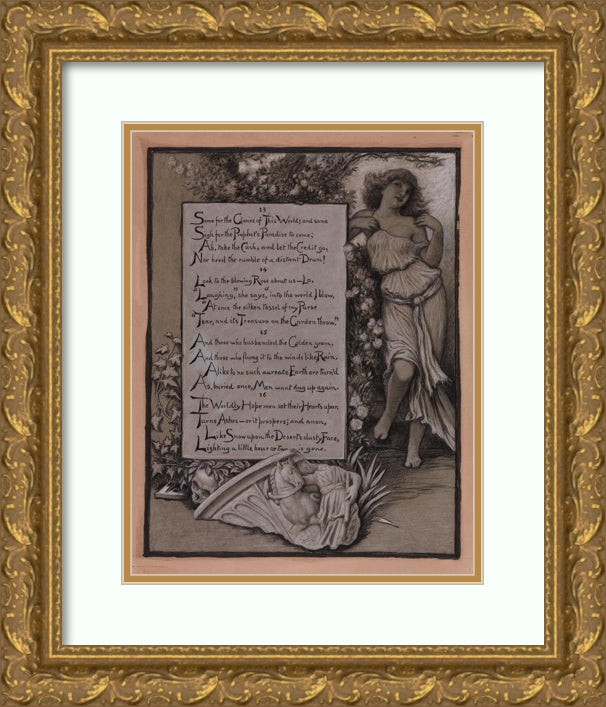 13
Some for the Glories of This World; and some
Sigh for the Prophet's Paradise to come;
Ah, take the Cash, and let the Credit go,
Nor heed the rumble of a distant Drum!
14
Look to the blowing Rose about us—"Lo,
"Laughing," she says, "into the world I blow,
"At once the silken tassel of my Purse
"Tear, and its Treasure on the Garden throw."
15
And those who husbanded the Golden grain,
And those who flung it to the winds like Rain,
Alike to no such aureate Earth are turn'd
As, buried once, Men want dug up again.
16
The Worldly Hope men set their Hearts upon
Turns Ashes—or it prospers; and anon,
Like Snow upon the Desert's dusty Face,
Lighting a little hour or is gone.